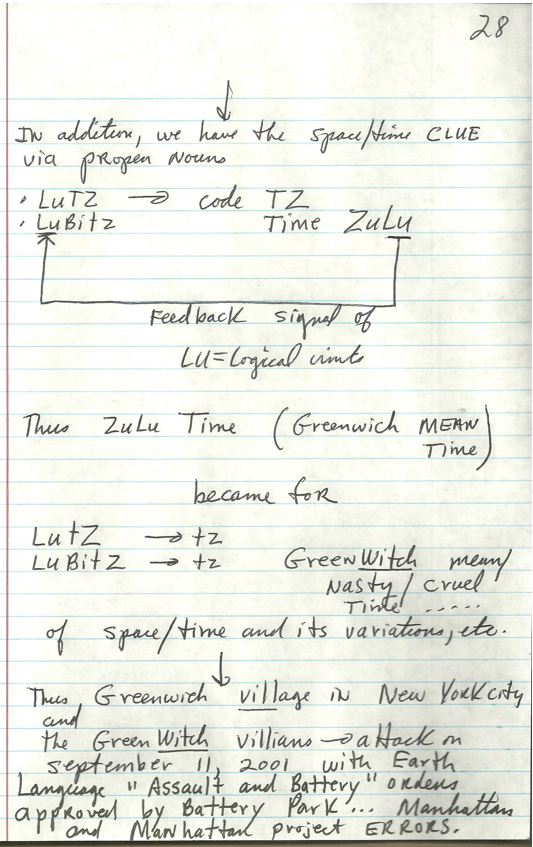 28
In addition, we have the space/time CLUE
via proper nouns
• LuTZ → code TZ
• LuBitz Time ZuLu
Feedback signal of
LU=Logical units
Thus ZuLu Time (Greenwich MEAN
Time)
became for
LutZ → tz
LuBitZ → tz GreenWitch mean/
Nasty/cruel
Time .....
of space/time and its variations, etc.
Thus Greenwich village in New York city
and
the GreenWitch villians → attack on
september 11, 2001 with Earth
Language "Assault and Battery" orders
approved by Battery Park... Manhattan
and Manhattan project ERRORS.